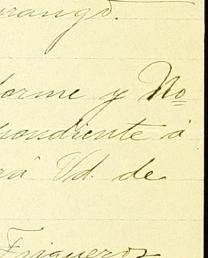 urango.
forme y No
pondiente á
rá Vd. de
Trigueros